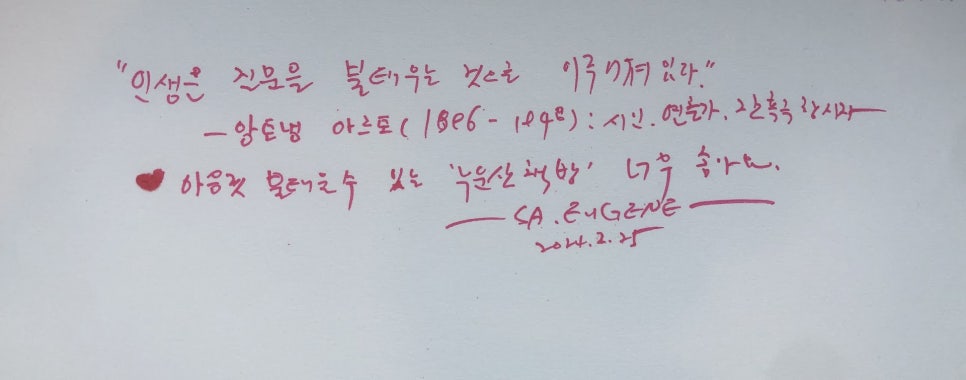 "인생은 질문을 불태우는 것으로 이루어져 있다."
- 앙토냉 아르토(1896-1948): 시인. 연출가. 잔혹극 창시자
마음껏 불태울 수 있는 '누운산책방' 너무 좋아요.
SA. EUGENE
2024.2.25